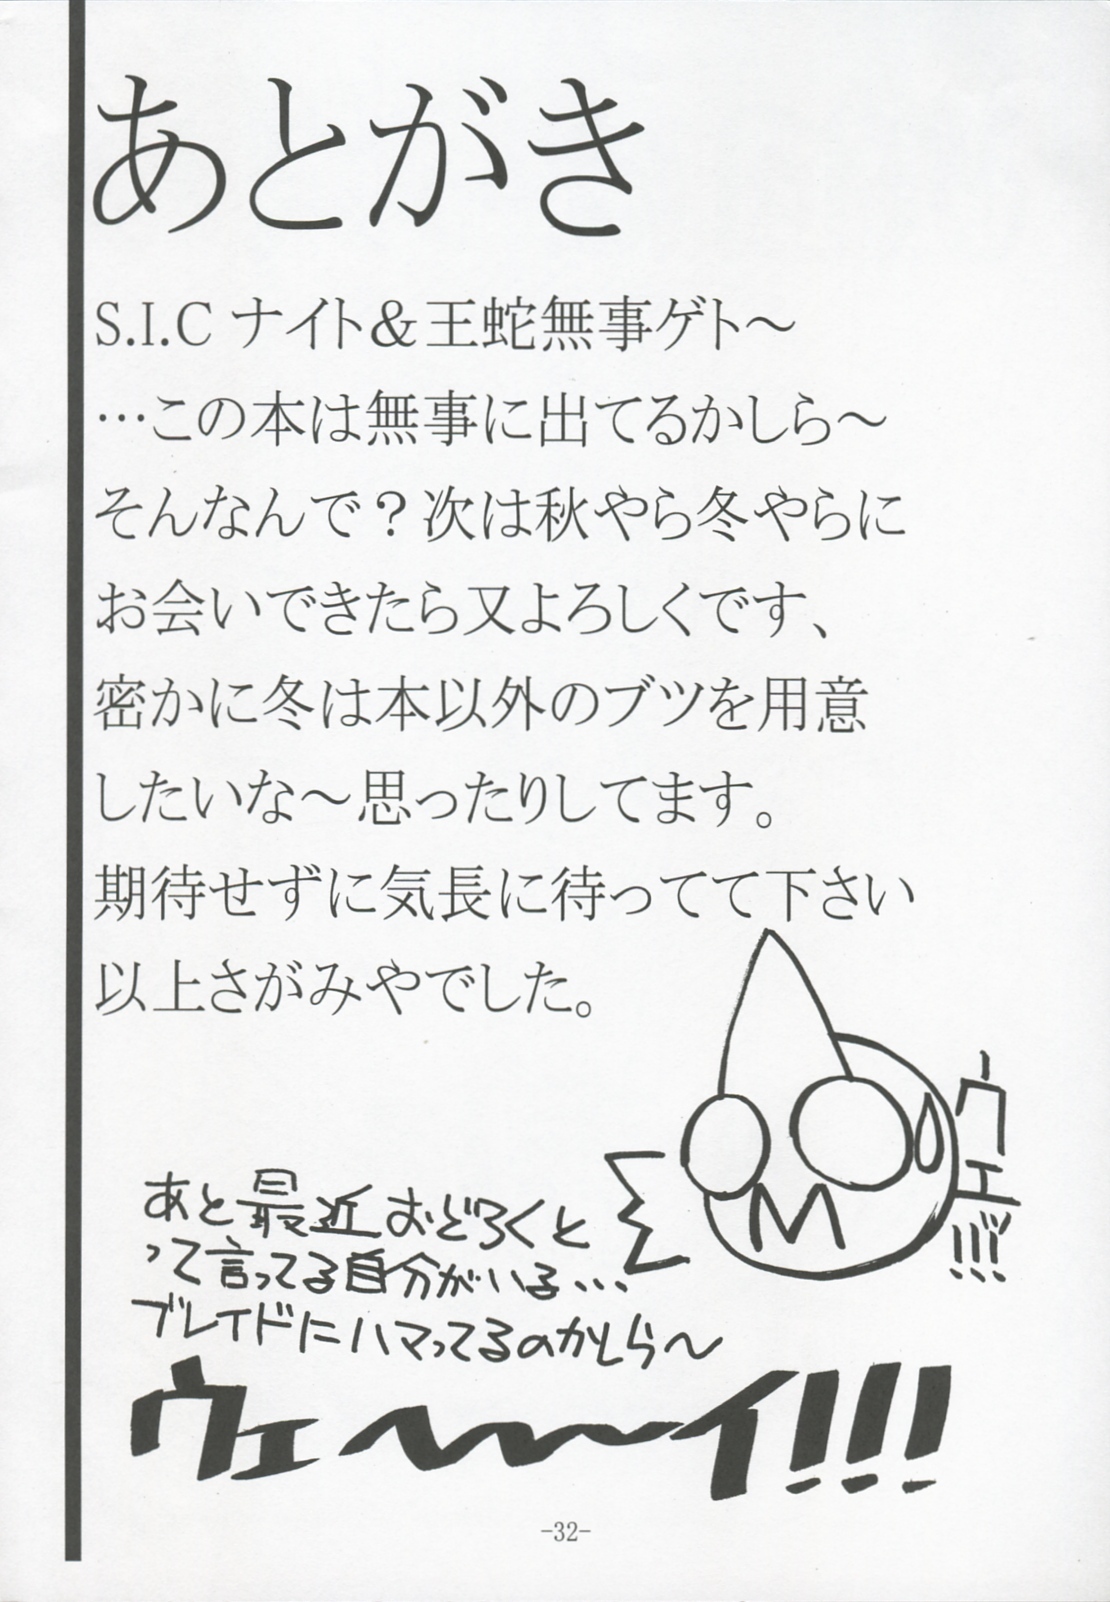 あとがき
S.I.C ナイト＆王蛇無事ゲト～
…この本は無事に出てるかしら～
そんなんで？次は秋やら冬やらに
お会いできたら又よろしくです、
密かに冬は本以外のブツを用意
したいな～思ったりしてます。
期待せずに気長に待ってて下さい
以上さがみやでした。
ウェ!!!
あと最近おどろくと
って言ってる自分がいる…
ブレイドにハマってるのかしら～
ウェ～～イ!!!
-32-